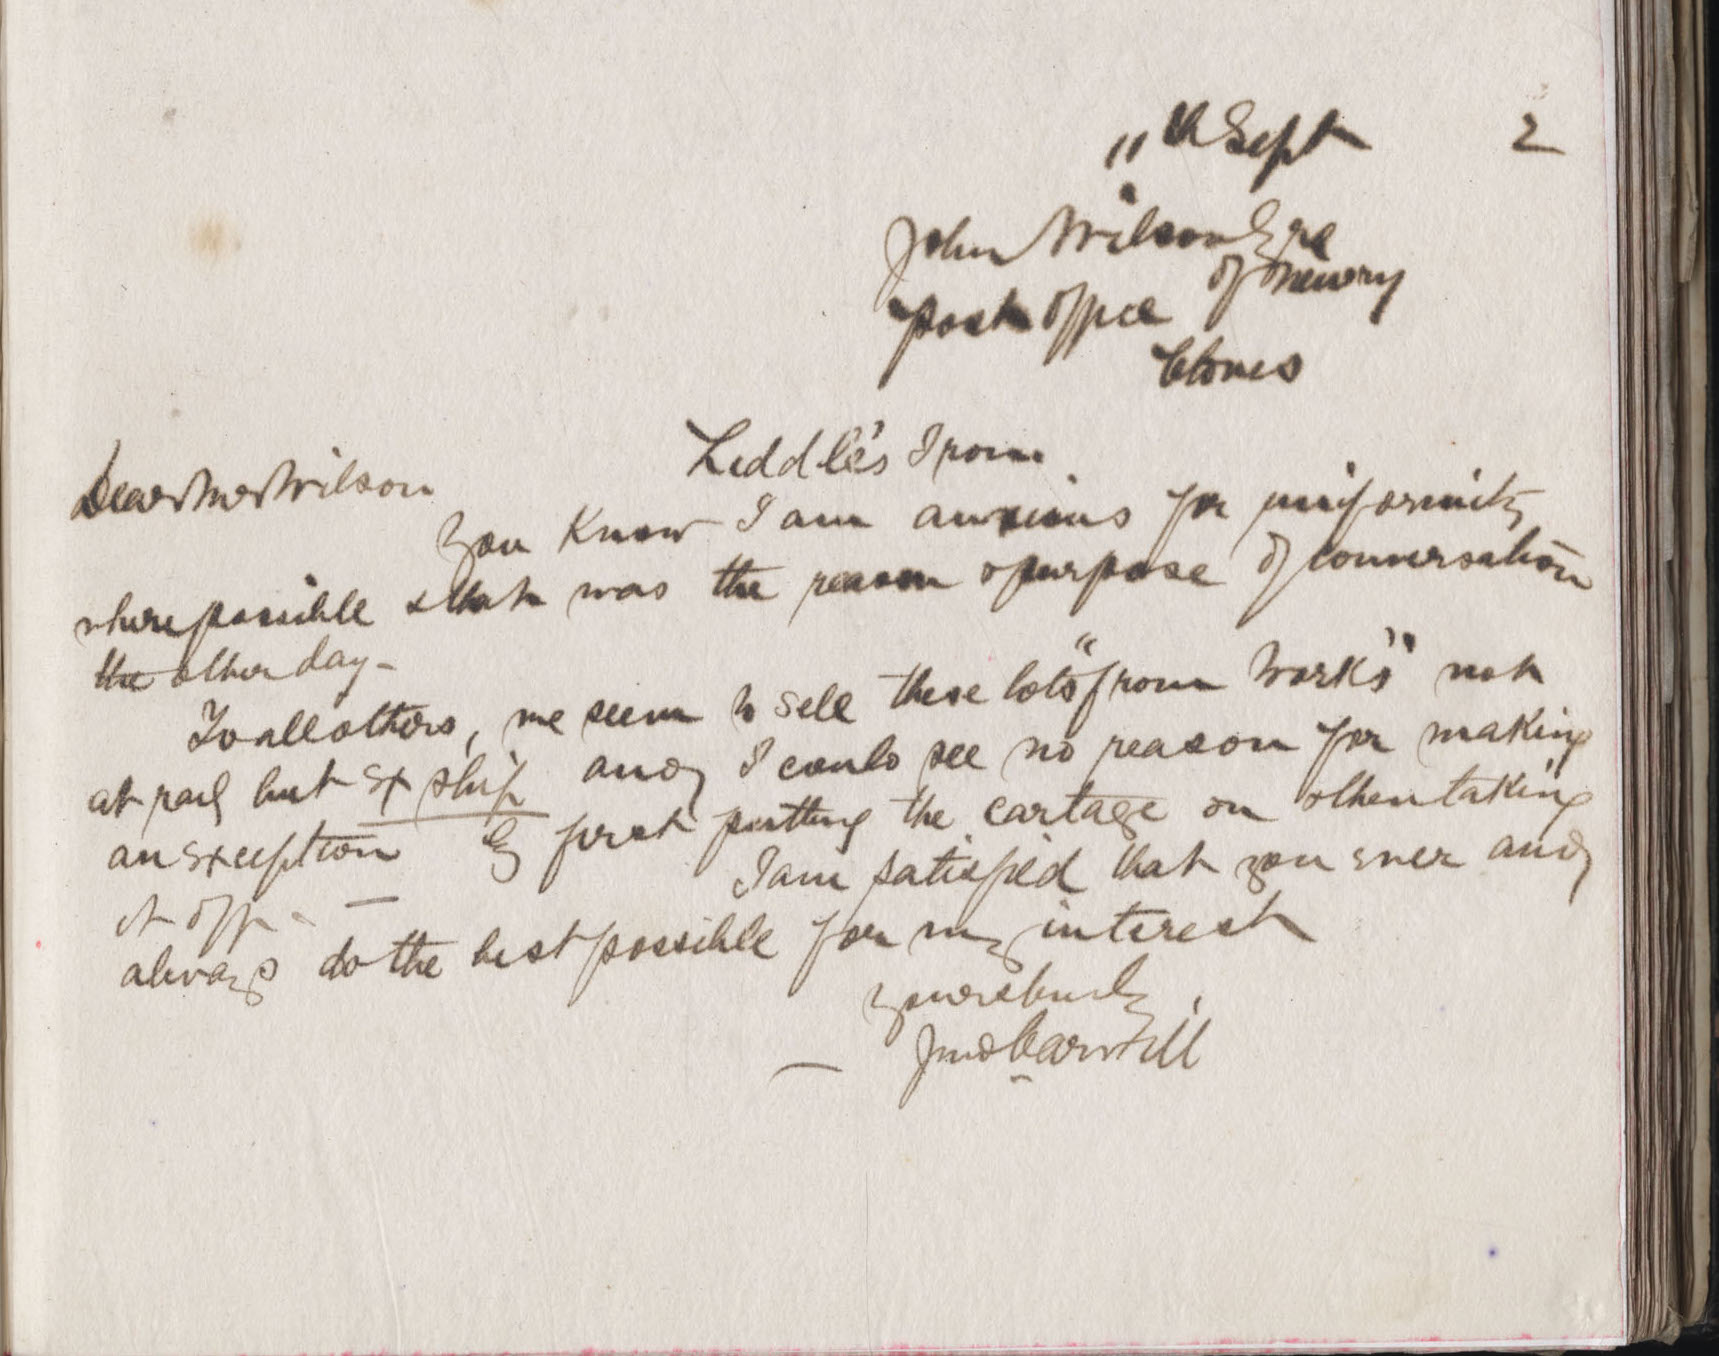 11th Sept 2
John Wilson Esqre
of Newry
Post Office
Clones
Liddle's Iron
Dear Mr Wilson
You know I am anxious for uniformity
where possible & that was the reason & purpose of conversation
the other day-
To all others, we seem to sell these lots "from Works" not
at rail but ex ship and I could see no reason for making
an exception by first putting the cartage on & then taking
it off - —
I am satisfied that you ever and
always do the best possible for my interest
Yours truly
— Jno Carvill